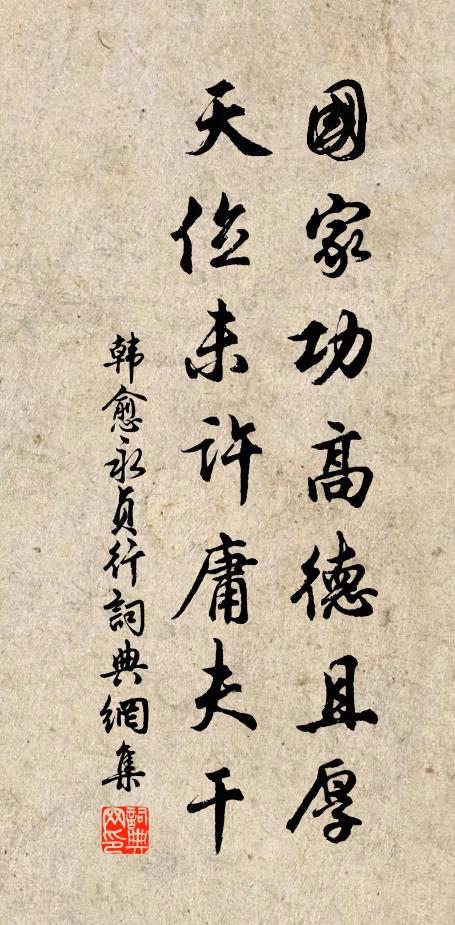 國家功高德且厚
天位未許庸夫干
韩愈永貞行詞典網集
詞典網印